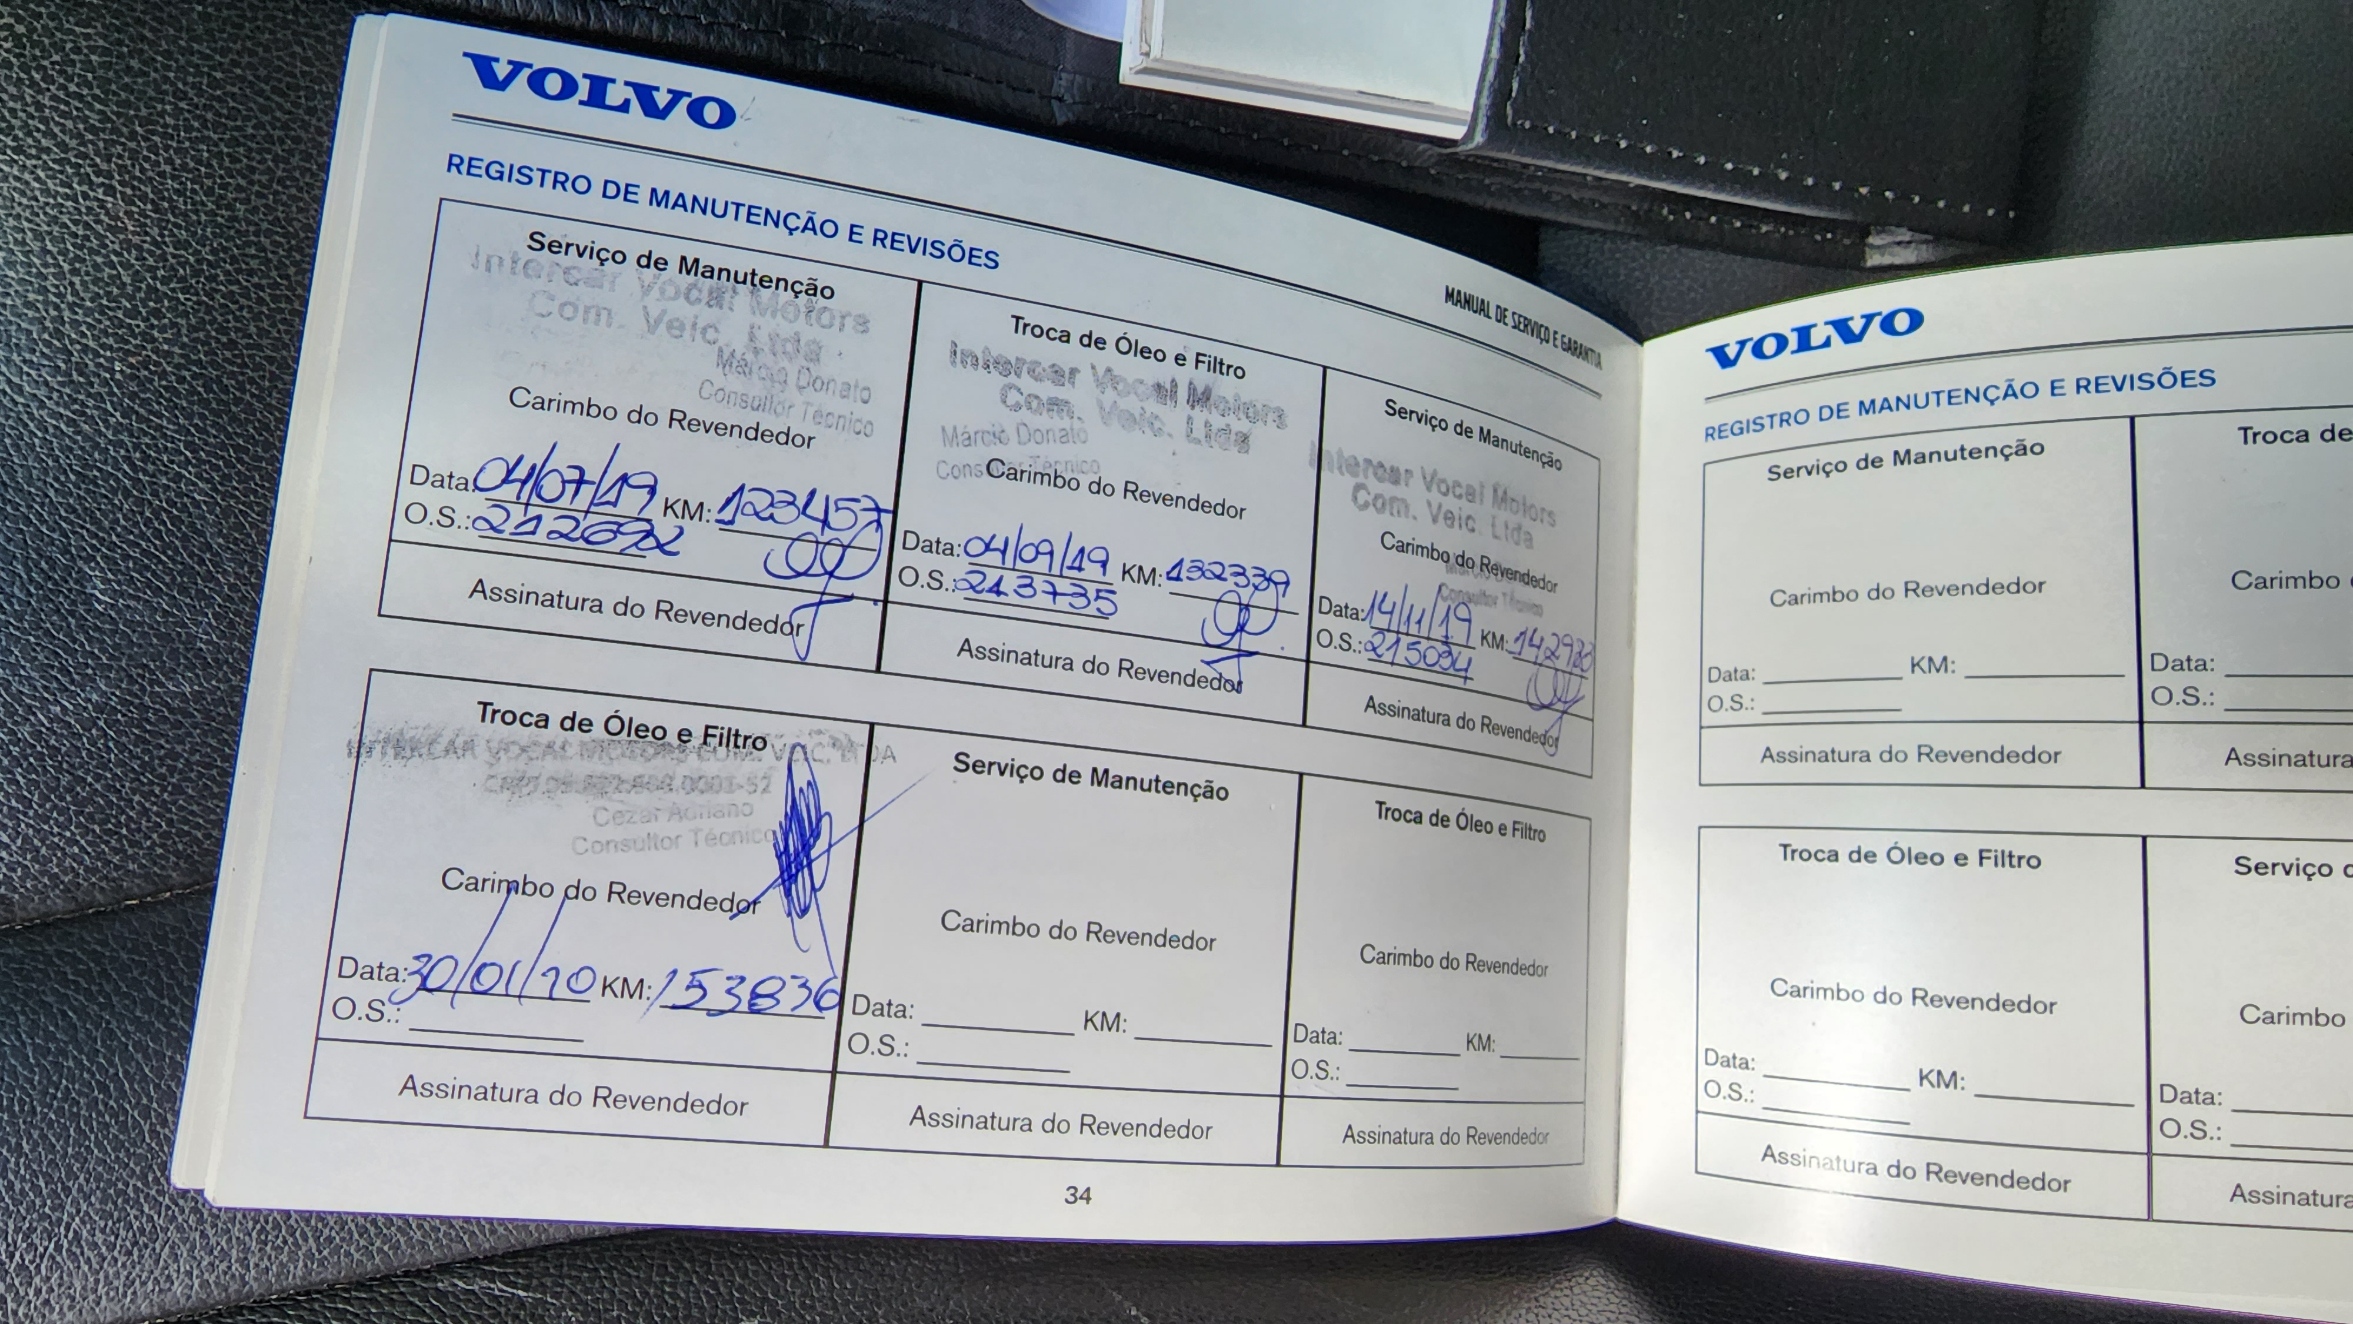 VOLVO
REGISTRO DE MANUTENÇÃO E REVISÕES
MANUAL DE SERVIÇO E GARANTIA
Serviço de Manutenção
Intercar Vocal Motors
Com. Veic. Ltda
Márcio Donato
Consultor Técnico
Carimbo do Revendedor
Data: 04/07/19 KM: 123457
O.S.: 212692
Assinatura do Revendedor
Troca de Óleo e Filtro
Intercar Vocal Motors
Com. Veic. Ltda
Márcio Donato
Consultor Técnico
Carimbo do Revendedor
Data: 04/09/19 KM: 132339
O.S.: 213735
Assinatura do Revendedor
Serviço de Manutenção
Intercar Vocal Motors
Com. Veic. Ltda
Carimbo do Revendedor
Consultor Técnico
Data: 14/11/19 KM:
O.S.: 215034
Assinatura do Revendedor
Troca de Óleo e Filtro
INTERCAR VOCAL MOTORS COM. VEIC. LTDA
Cezar Adriano
Consultor Técnico
Carimbo do Revendedor
Data: 30/01/20 KM: 153836
O.S.:
Assinatura do Revendedor
Serviço de Manutenção
Carimbo do Revendedor
Data: KM:
O.S.:
Assinatura do Revendedor
Troca de Óleo e Filtro
Carimbo do Revendedor
Data: KM:
O.S.:
Assinatura do Revendedor
34
VOLVO
REGISTRO DE MANUTENÇÃO E REVISÕES
Serviço de Manutenção
Carimbo do Revendedor
Data: KM:
O.S.:
Assinatura do Revendedor
Troca de
Carimbo
Data:
O.S.:
Assinatura
Troca de Óleo e Filtro
Carimbo do Revendedor
Data: KM:
O.S.:
Assinatura do Revendedor
Serviço
Carimbo
Data:
O.S.:
Assinatura